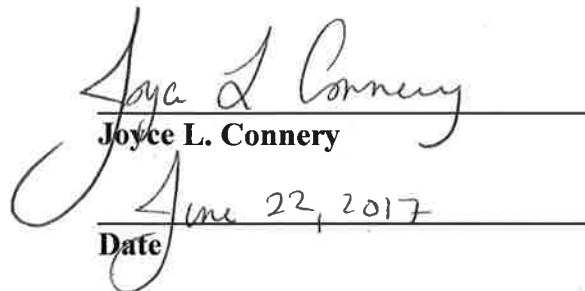 Joyce L Connery
Joyce L. Connery
June 22, 2017
Date